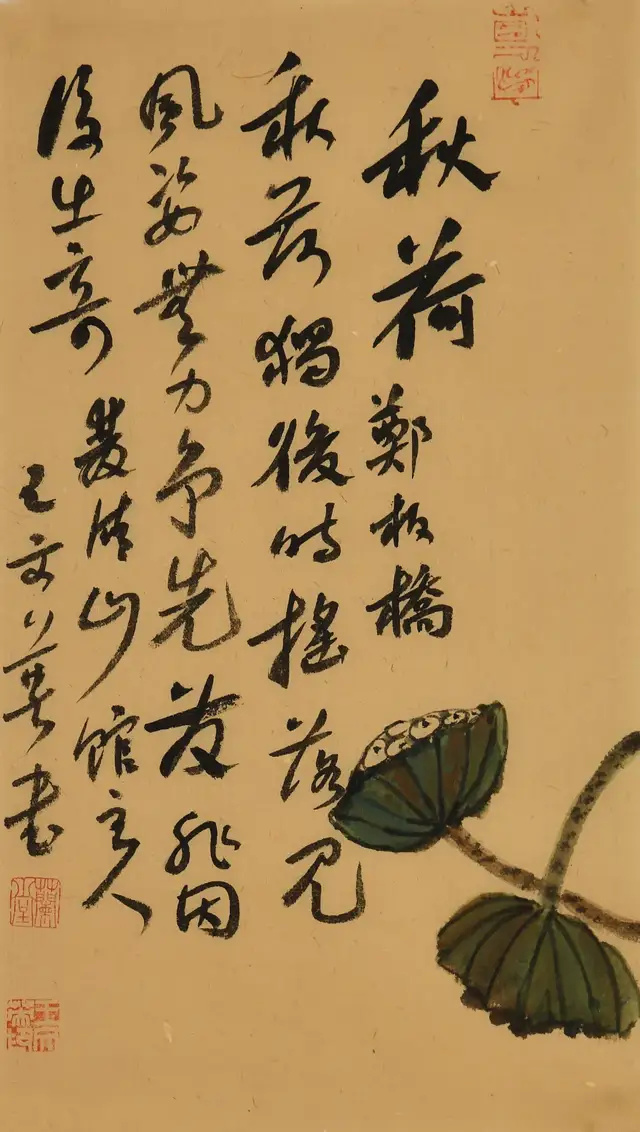 秋荷 鄭板橋
秋荷獨後時搖落見
風姿無力爭先發非因
後出奇 山館主人
王文書